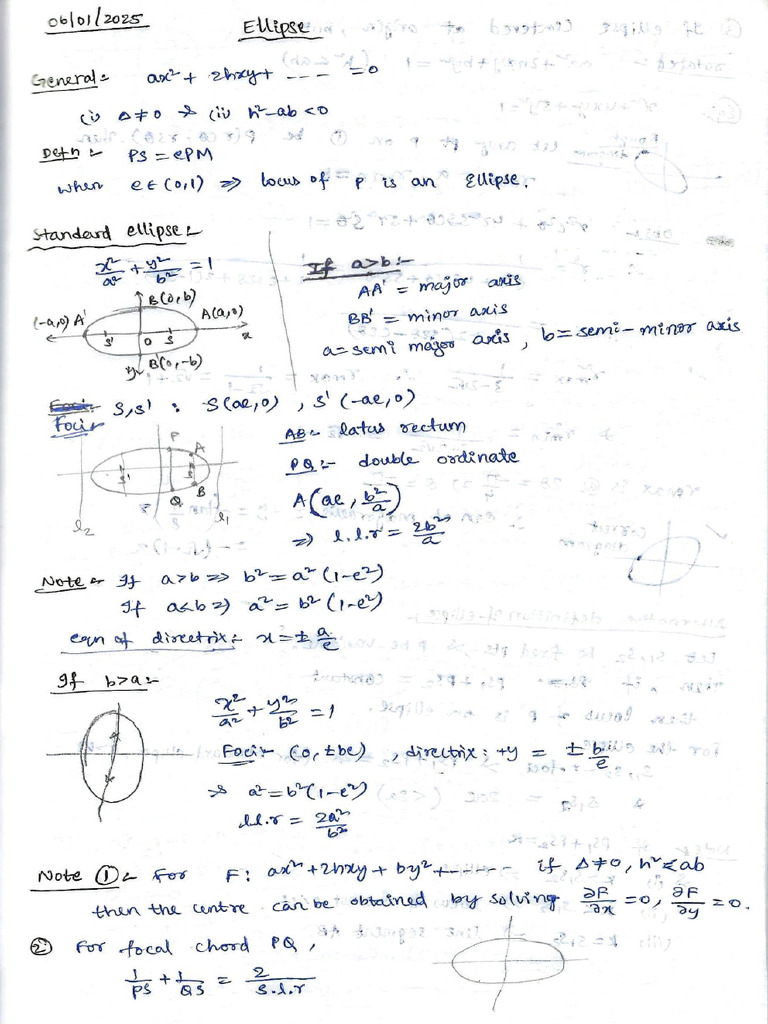 06/01/2025
Ellipse
General:- ax² + 2hxy + ---- = 0
(i) Δ≠0 & (ii) h²-ab<0
Defn :- PS = ePM
when e ∈ (0,1) => locus of P is an Ellipse.
Standard ellipse:-
x²/a² + y²/b² = 1
B(0,b)
(-a,0) A'
A(a,0)
S' O S x
y B'(0,-b)
If a>b:-
AA' = major axis
BB' = minor axis
a = semi major axis , b = semi-minor axis
Foci:- S,S' : S(ae,0) , S'(-ae,0)
P A
S' S
Q B
l₂ l₁
AB:- latus rectum
PQ:- double ordinate
A(ae, b²/a)
=> l.l.r = 2b²/a
Note:- If a>b => b² = a²(1-e²)
If a<b => a² = b²(1-e²)
eqn of directrix:- x = ± a/e
If b>a:-
x²/a² + y²/b² = 1
Foci:- (0, ±be) , directrix: +y = ± b/e
& a² = b²(1-e²)
l.l.r = 2a²/b²
Note ①:- For F: ax² + 2hxy + by² + ------ if Δ≠0, h²≤ab
then the centre can be obtained by solving ∂F/∂x = 0, ∂F/∂y = 0.
② For focal chord PQ,
1/PS + 1/QS = 2/s.l.r